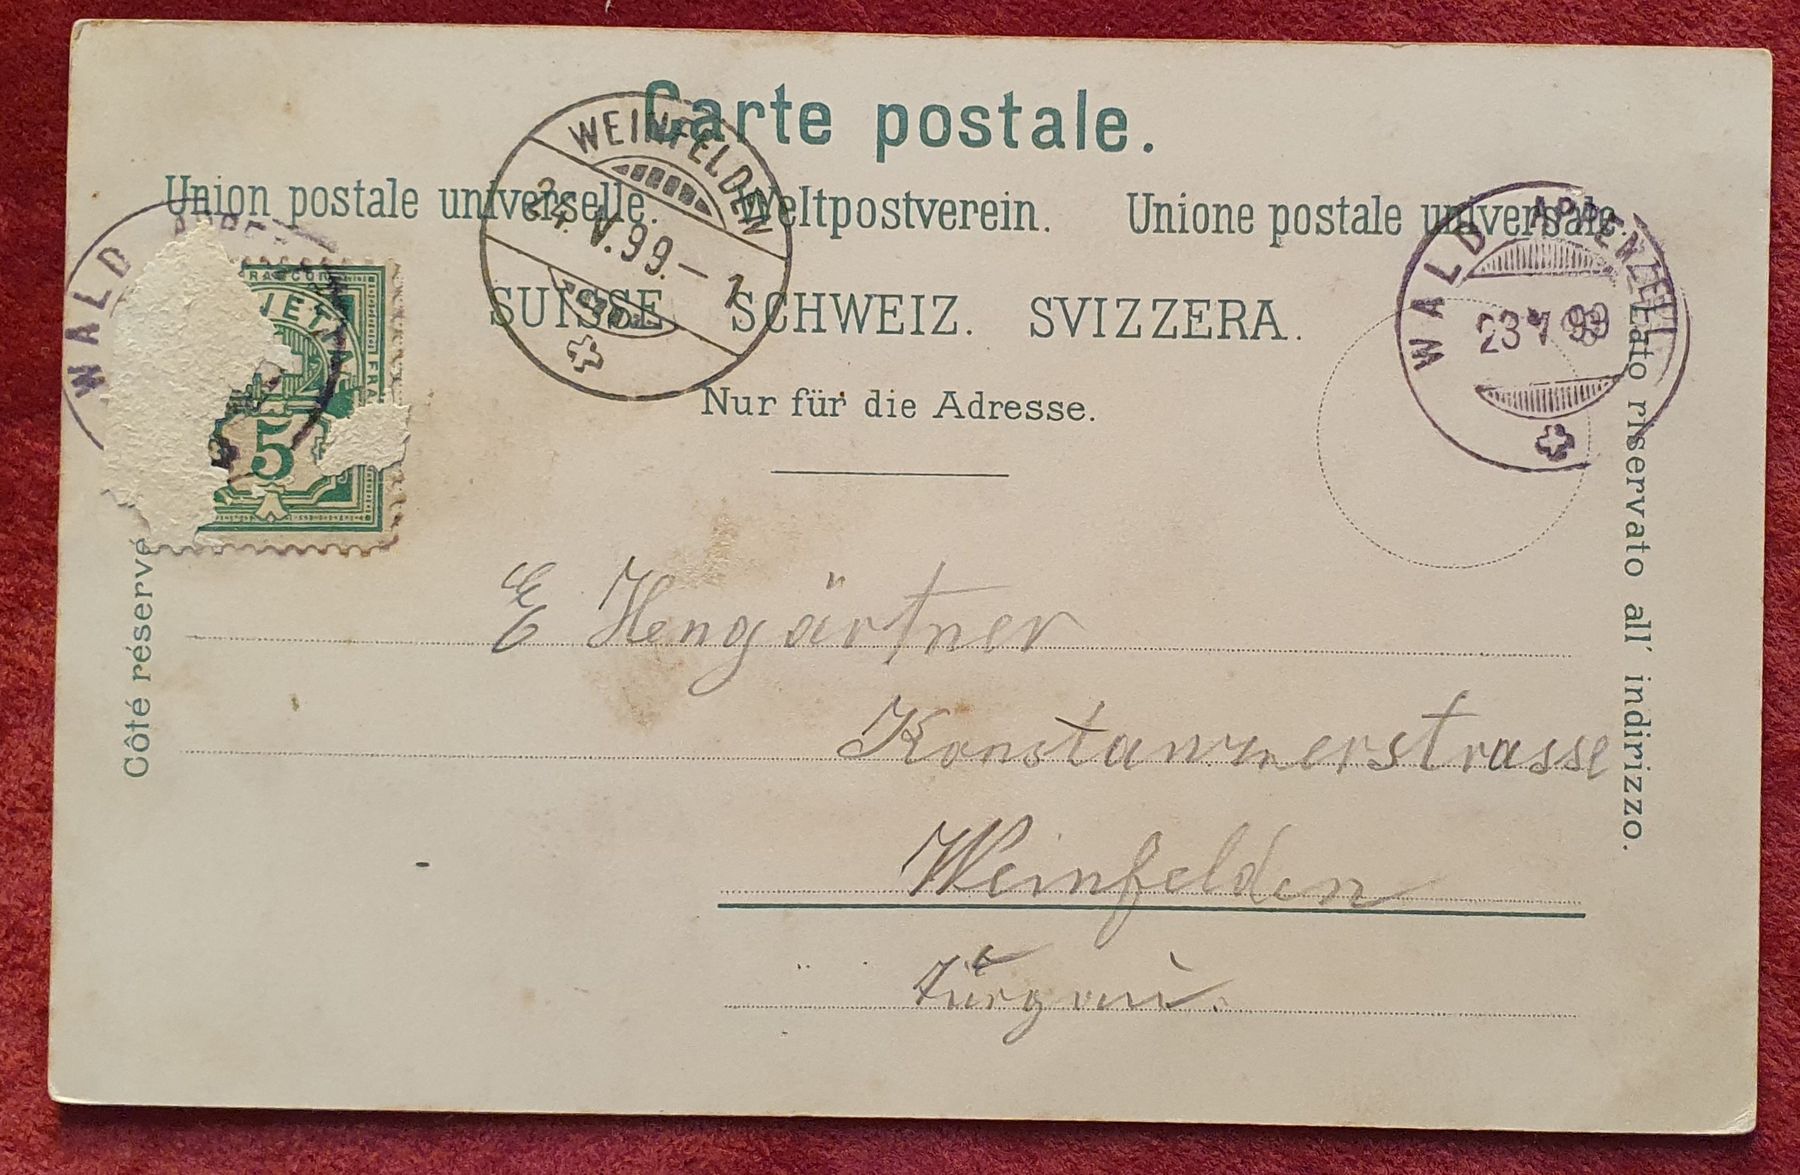 Carte postale.
Union postale universelle. Weltpostverein. Unione postale universale.
SUISSE SCHWEIZ. SVIZZERA.
Nur für die Adresse.
WEINFELDEN
24. V. 99. – 7
WALD APPENZELL
23 V 99
WALD APPE
FRANCO
5
FRA
Côté réservé
Lato riservato all' indirizzo.
E Hengärtner
Konstanzerstrasse
Weinfelden
Turgau.